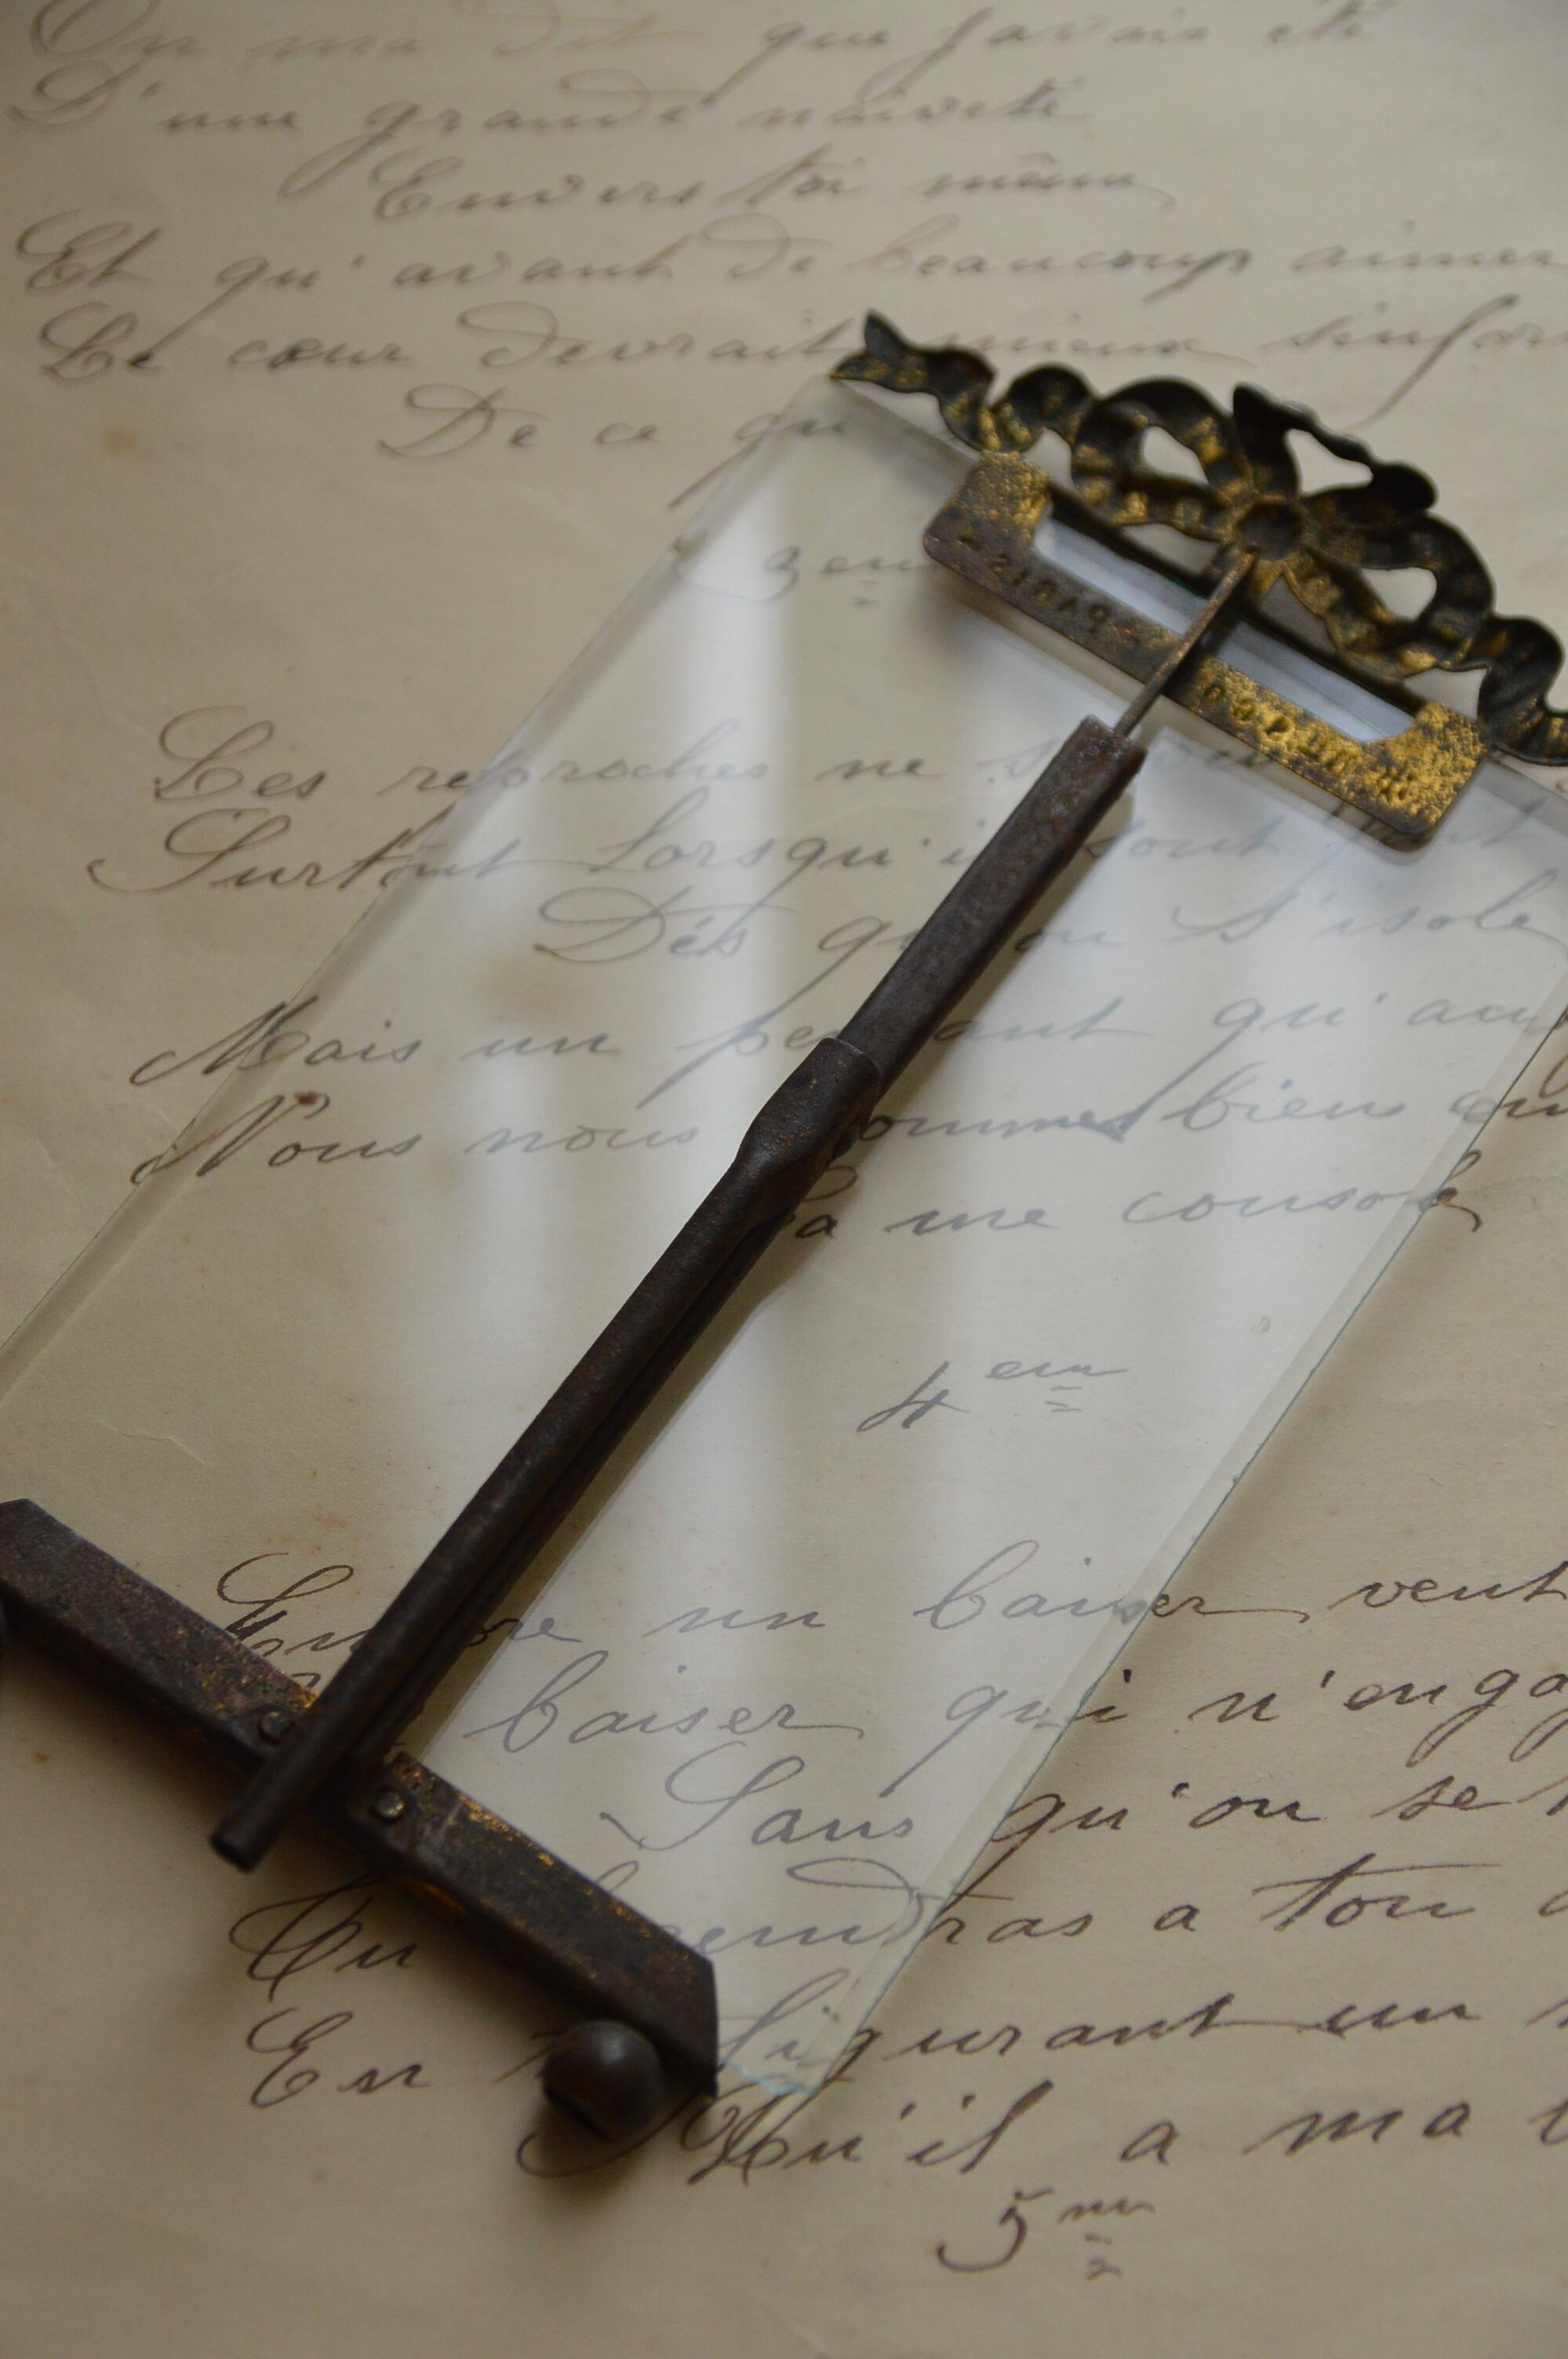 On ma dit que j'avais été
D'une grande naïveté
Envers toi même
Et qu'avant de beaucoup aimer
Le cœur devrait mieux s'infor
De ce qu
3em
Les reproches ne
Surtout Lorsqu'il sont
Dés qu'on S'isole
Mais un pendant qu'au
Nous nous sommes bien
Ca me console
4em
Encore un baiser veut
baiser qui n'enga
Sans qu'on se
Tu tiendras a ton
En figurant un
Qu'il a ma
5me
PARIS